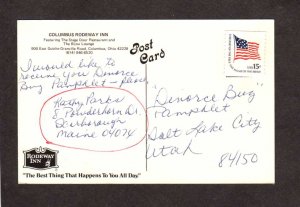 COLUMBUS RODEWAY INN
Featuring The Stage Door Restaurant and
The Show Lounge
Columbus, Ohio
Post
Card
15c
I would like to
receive you Divorce
Bug Pamphlet - Please
Kathy Parks
5 Powderhorn Dr.
Scarborough
Maine 04074
"Divorce Bug"
Pamphlet
Salt Lake City
Utah
84150
RODEWAY INN
"The Best Thing That Happens To You All Day."